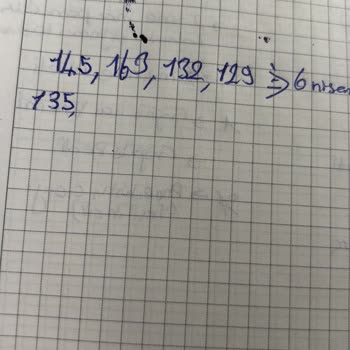 145, 169, 132, 129 => 6 nisen
135,